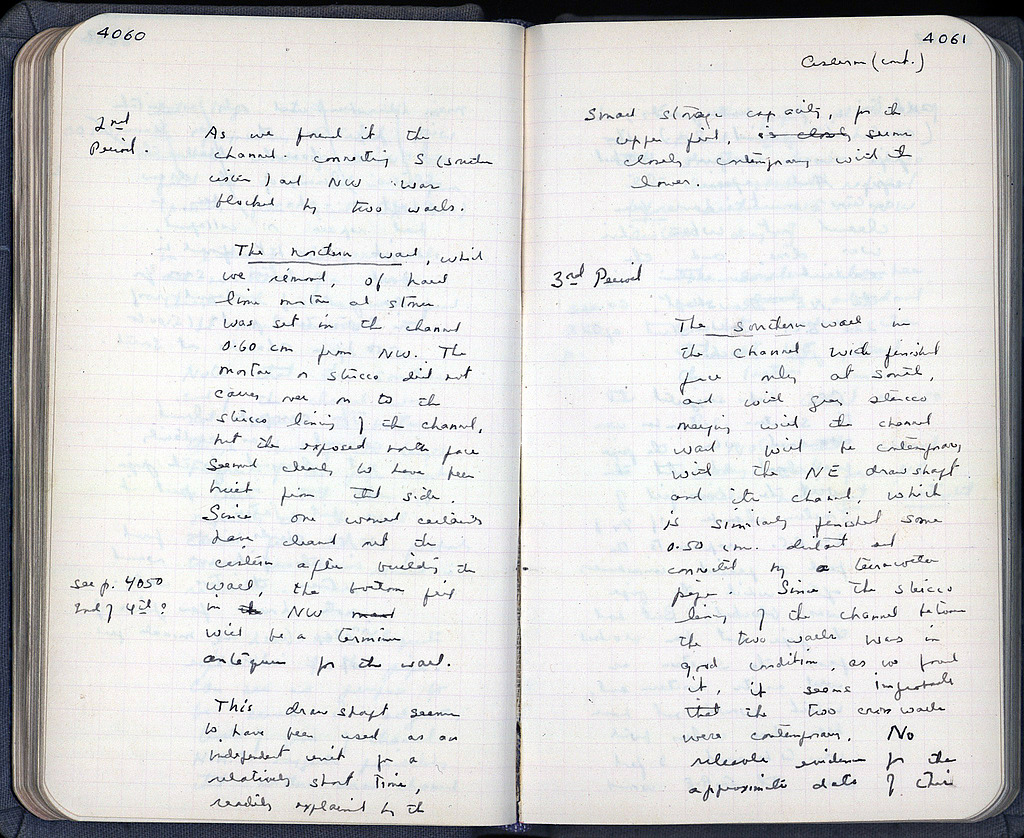 4060
2nd
Period.
As we found it the
channel connecting S (south
cistern) and NW was
blocked by two walls.
The northern wall, which
we removed, of hard
lime mortar and stones
was set in the channel
0.60 cm from NW. The
mortar or stucco did not
carry over on to the
stucco lining of the channel,
but the exposed north face
seemed clearly to have been
built from that side.
Since one would certainly
have cleaned out the
cistern after building the
see p. 4050
2nd of 4th?
wall, the bottom fill
in the NW
will be a terminus
antequem for the wall.
This draw shaft seems
to have been used as an
independent unit for a
relatively short time,
readily explained by the
4061
Cistern (cont.)
small storage capacity, for the
upper fill, is closely seems
closely contemporary with the
lower.
3rd Period
The southern wall in
the channel with finished
face only at south,
and with gray stucco
merging with the channel
wall will be contemporary
with the NE draw shaft
and its channel, which
is similarly finished some
0.50 cm. distant and
connected by a terracotta
pipe. Since the stucco
lining of the channel between
the two walls was in
good condition, as we found
it, it seems improbable
that the two cross walls
were contemporary. No
reliable evidence for the
approximate date of this